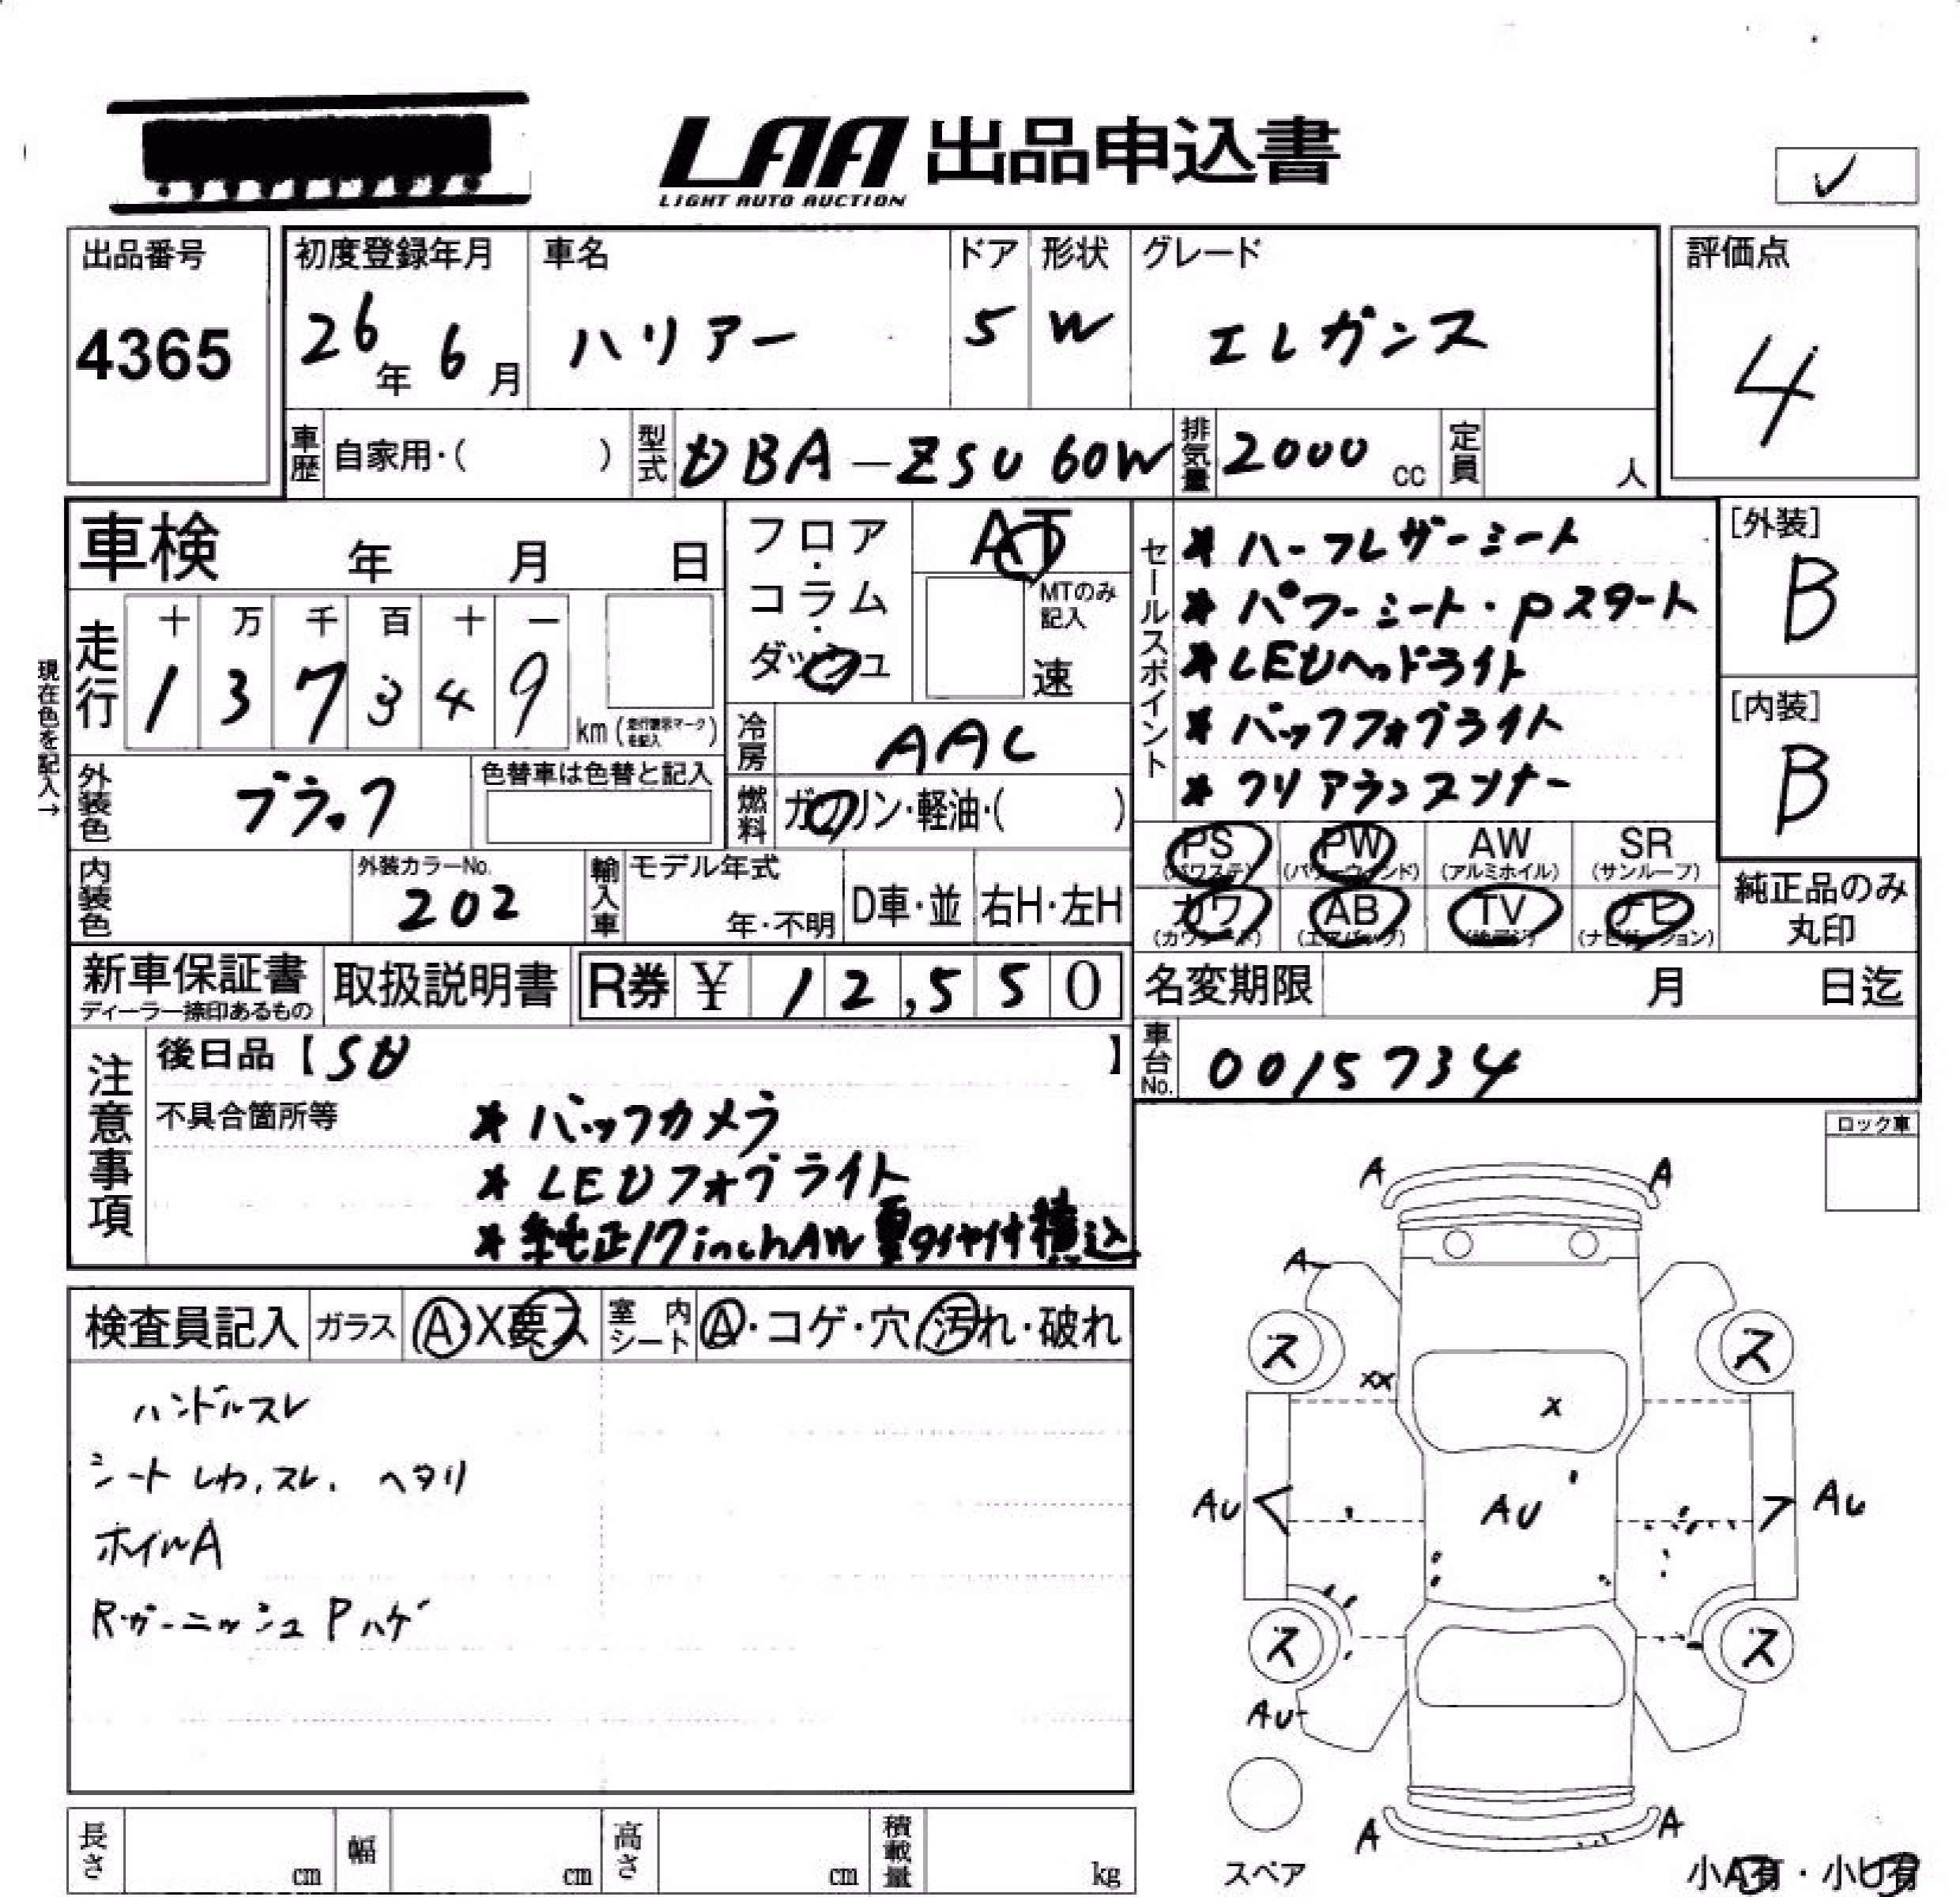 LAA 出品申込書
LIGHT AUTO AUCTION
出品番号
4365
初度登録年月
26年 6月
車名
ハリアー
ドア
5
形状
W
グレード
エレガンス
評価点
4
車歴 自家用・( )
型式 DBA-ZSU60W
排気量 2000 cc
定員 人
車検 年 月 日
フロア・コラム・ダッシュ
AT
MTのみ記入
速
セールスポイント
* ハーフレザーミート
* パワーミート・Pスタート
* LEDヘッドライト
* バックフォグライト
* クリアランスソナー
[外装]
B
[内装]
B
現在色を記入→
走行
十 万 千 百 十 一
1 3 7 3 4 9
km (走行表示マークを記入)
冷房 AAC
外装色 ブラック
色替車は色替と記入
燃料 ガソリン・軽油・( )
PS (パワステ) PW (パワーウィンド) AW (アルミホイル) SR (サンルーフ)
カワ (カワシート) AB (エアバック) TV (地デジ) ナビ (ナビゲーション)
純正品のみ丸印
内装色
外装カラーNo.
202
輸入車
モデル年式
年・不明
D車・並
右H・左H
新車保証書
ディーラー捺印あるもの
取扱説明書
R券 ¥ 12,550
名変期限 月 日迄
車台No. 0015734
注意事項
後日品【SD 】
不具合箇所等
* バックカメラ
* LEDフォグライト
* 純正17inchAW夏タイヤ付積込
ロック車
検査員記入
ガラス A・X要ス
室内シート A・コゲ・穴・汚れ・破れ
ハンドルスレ
シート しわ、スレ、ヘタリ
ホイルA
Rガーニッシュ Pハゲ
A A
A
ス ス
XX
X
AU AU AU
ス ス
AU
A A
スペア
小A有・小U有
長さ cm
幅 cm
高さ cm
積載量 kg